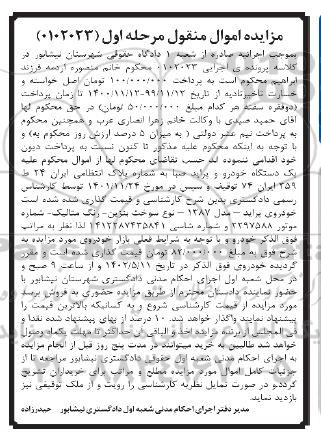 مزایده اموال منقول مرحله اول (0102023)
بموجب اجرائیه صادره از شعبه 1 دادگاه حقوقی شهرستان نیشابور در
کلاسه پرونده ی اجرایی 0102023 محکوم خانم منصوره ازمه فرزند
ابراهیم محکوم است به پرداخت 100/000/000 تومان اصل خواسته و
خسارت تاخیرتادیه از تاریخ 99/11/12-1400/11/13 تا زمان پرداخت
(دوفقره سفته هر کدام مبلغ 50/000/000 تومان) در حق محکوم لها
آقای حمید صیدی با وکالت خانم زهرا انصاری عرب و همچنین محکوم
به پرداخت نیم عشر دولتی ( به میزان 5 درصد ارزش روز محکوم به) و
با توجه به اینکه محکوم علیه مذکور تا کنون نسبت به پرداخت دیون
خود اقدامی ننموده لند حسب تقاضای محکوم لها از اموال محکوم علیه
یک دستگاه خودرو و پراید صبا به شماره پلاک انتظامی ایران 24 ط
359 ایران 74 توقیف و سپس در مورخ 1401/11/24 توسط کارشناس
رسمی دادگستری بدین شرح کارشناسی و قیمت گذاری شده شده است
خودروی پراید – مدل 1387 – نوع سوخت بنزین- رنگ متالیک- شماره
موتور 2297588 و شماره شاسی 1412287435841 لذا نظر به مراتب
فوق الذکر خودرو و با توجه به شرایط فعلی بازار خودروی مورد مزایده به
شرح فوق به مبلغ 82/000/000 تومان قیمت گذاری شده است و مقرر
گردیده خودروی فوق الذکر در تاریخ 1402/5/11 و از ساعت 9 صبح و
در محل شعبه اول اجرای احکام مدنی دادگستری شهرستان نیشابور با
حضور نماینده دادستان محترم از طریق مزایده حضوری به فروش برسد
مورد مزایده از قیمت کارشناسی شروع و به کسانیکه بالاترین قیمت را
پیشنهاد نمایند واگذار خواهد شد. 10 درصد از بهای پیشنهاد شده نقدا و
فی المجلس از برنده مزایده اخذ و الباقی حداکثر تا مهلت یکماه وصول
خواهد شد طالبین به خرید میتوانند در مدت پنج روز قبل از انجام مزایده
به اجرای احکام مدنی شعبه اول حقوقی دادگستری نیشابور مراجعه تا از
جزئیات کامل اموال مورد مزایده مطلع و مراتب برای خریداران تشریح
گردد.و در صورت تمایل نظریه کارشناسی را رویت و از ملک توقیفی نیز
بازدید نمایند.
مدیر دفتر اجرای احکام مدنی شعبه اول دادگستری نیشابور حیدرزاده